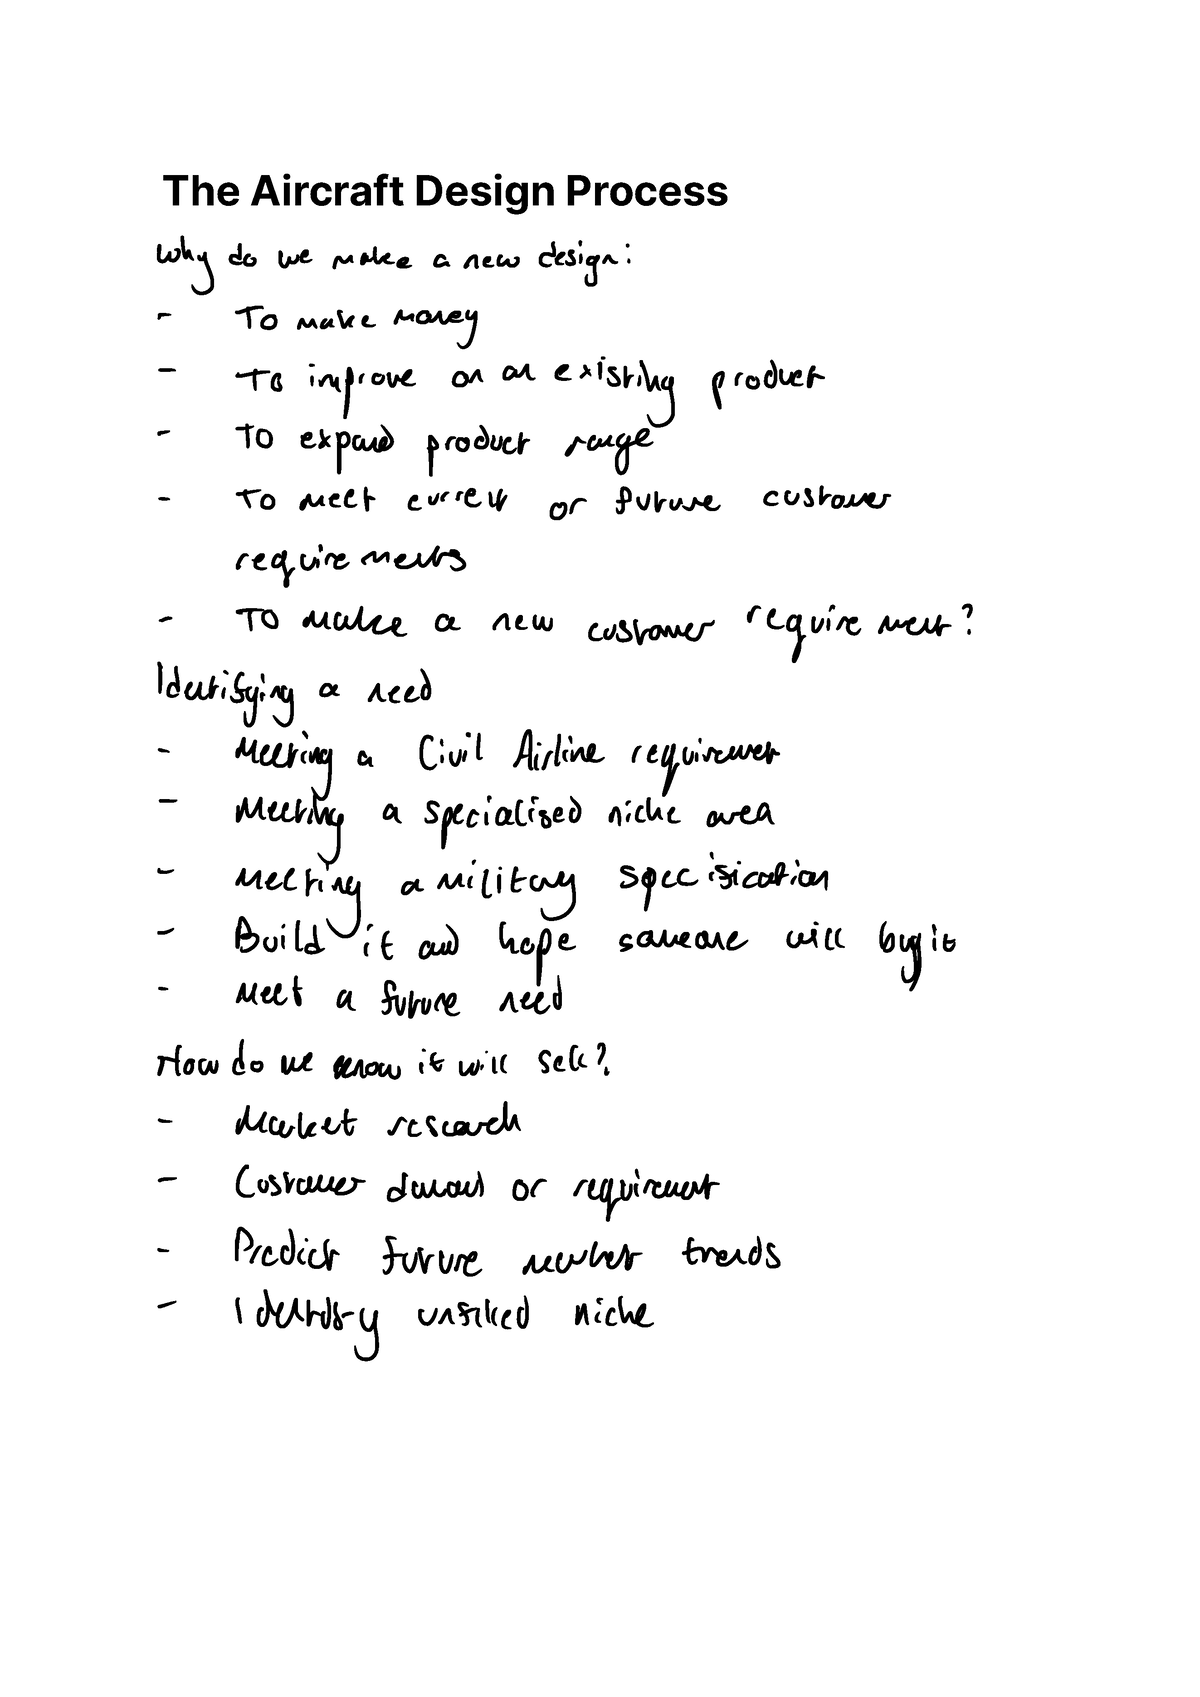 The Aircraft Design Process
Why do we make a new design:
- To make money
- To improve on an existing product
- To expand product range
- To meet current or future customer
requirements
- To make a new customer requirement?
Identifying a need
- Meeting a Civil Airline requirement
- Meeting a specialised niche area
- Meeting a military specification
- Build it and hope someone will buy it
- Meet a future need
How do we know it will sell?
- Market research
- Customer demand or requirement
- Predict future market trends
- Identify unfilled niche